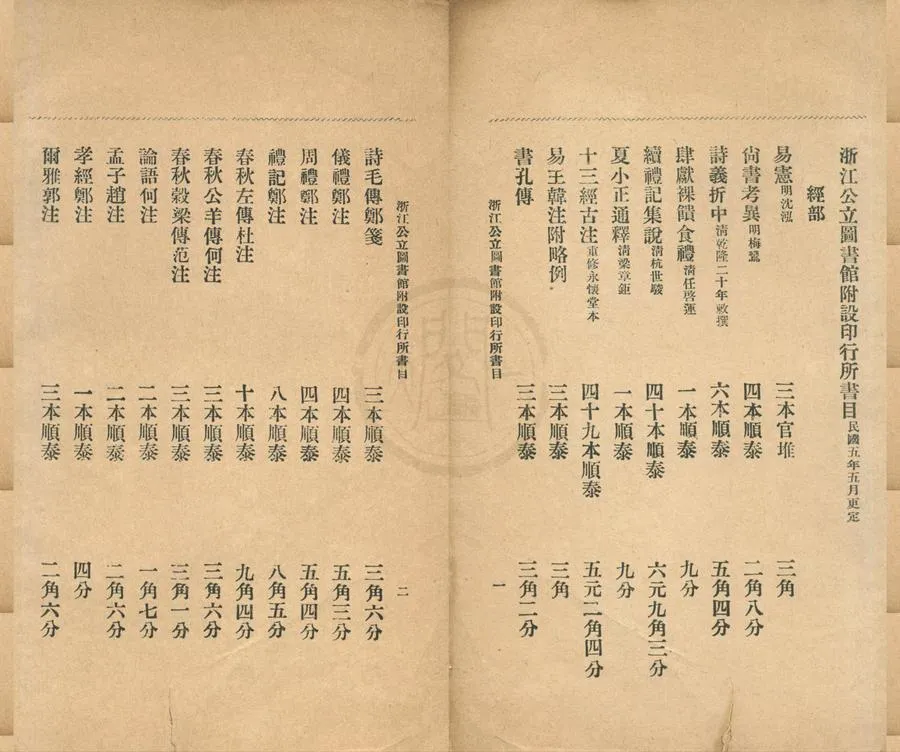 浙江公立圖書館附設印行所書目民國五年五月更定
經部
易憲明沈泓 三本官堆 三角
尙書考異明梅鷟 四本順泰 二角八分
詩義折中淸乾隆二十年敕撰 六本順泰 五角四分
肆獻祼饋食禮淸任啓運 一本順泰 九分
續禮記集說淸杭世駿 四十本順泰 六元九角三分
夏小正通釋淸梁章鉅 一本順泰 九分
十三經古注重修永懷堂本 四十九本順泰 五元二角四分
易王韓注附略例 三本順泰 三角
書孔傳 三本順泰 三角二分
浙江公立圖書館附設印行所書目 一
浙江公立圖書館附設印行所書目 二
詩毛傳鄭箋 三本順泰 三角六分
儀禮鄭注 四本順泰 五角三分
周禮鄭注 四本順泰 五角四分
禮記鄭注 八本順泰 八角五分
春秋左傳杜注 十本順泰 九角四分
春秋公羊傳何注 三本順泰 三角六分
春秋穀梁傳范注 三本順泰 三角一分
論語何注 二本順泰 一角七分
孟子趙注 二本順泰 二角六分
孝經鄭注 一本順泰 四分
爾雅郭注 三本順泰 二角六分